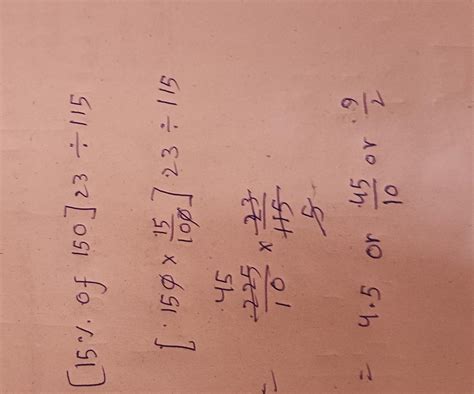 [15% of 150] 23 ÷ 115
[150 × 15/100] 23 ÷ 115
= 225/10 × 23/115 45 5
= 4.5 or 45/10 or 9/2